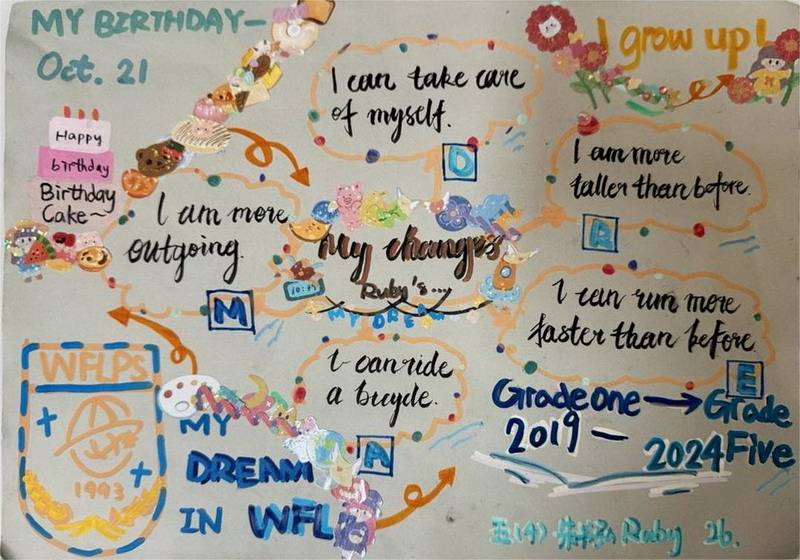 MY BIRTHDAY—
Oct. 21
I grow up!
Happy
birthday
Birthday
Cake~
I can take care
of myself.
D
I am more
taller than before.
R
I am more
outgoing.
M
My changes
Ruby's...
MY DREAM
I can run more
faster than before.
E
I can ride
a bicycle.
A
WFLPS
1993
MY
DREAM
IN WFL
Grade one → Grade
2019 — 2024 Five
五(4) Ruby 26.